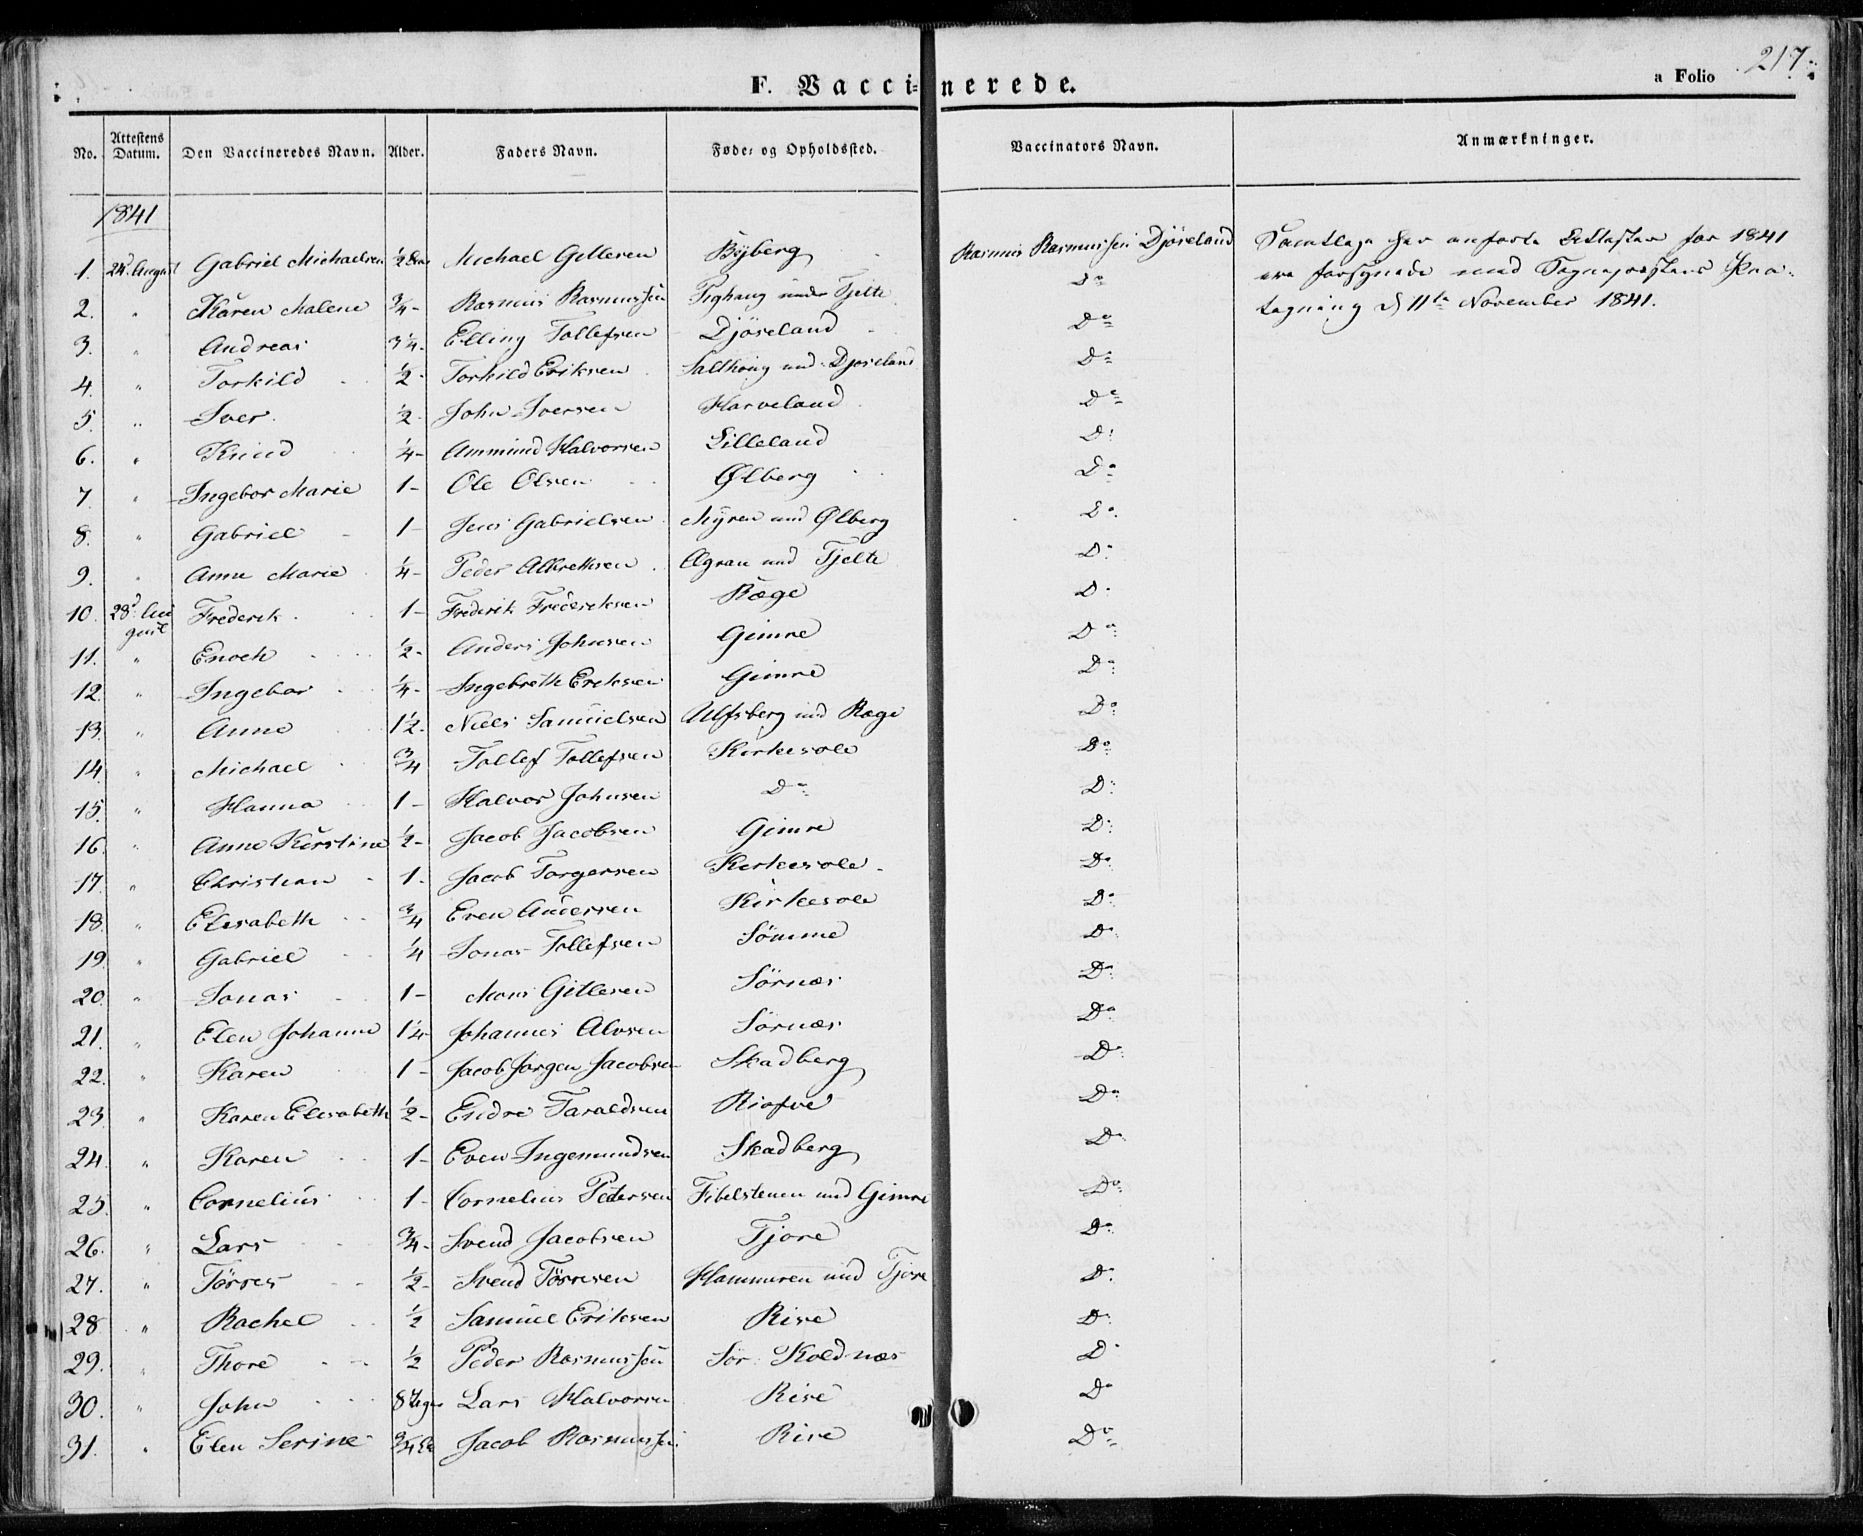 217.
F. Vaccinerede.
a Folio
No. Attestens Datum. Den Vaccineredes Navn. Alder. Faders Navn. Føde- og Opholdssted. Vaccinators Navn. Anmærkninger.
1841
1. 24d August Gabriel Michaelsen ½ Michael Gitlesen Byberg Rasmus Rasmussen Djöseland Samtlige her anførte Attester for 1841
2. " Karen Malene ¾ - Rasmus Rasmussen under Tjelte Do ere forsynede med Sognepræstens Paa-
3. " Andreas 3¼ - Elling Tollefsen Djöseland Do tegning d 11te November 1841.
4. " Torkild ½ - Torkild Eriksen Salthoug und. Djöseland Do
5. " Iver ½ - John Iversen Harveland Do
6. " Knud ¼ - Ammund Halvorsen Lilleland Do
7. " Ingebor Marie 1 - Ole Olsen Ølberg Do
8. " Gabriel 1 - Jens Gabrielsen Myren und Ølberg Do
9. " Anne Marie ¼ - Peder Albretsen Agran und Tjelte Do
10. 28d August Frederik 1 - Frederik Frederiksen Ræge Do
11. " Enoch ½ - Anders Johnsen Gimre Do
12. " Ingebor ¼ - Ingebreth Eriksen Gimre Do
13. " Anne 1½ - Niels Samuelsen Ulfsberg und Ræge Do
14. " Michael ¾ Tollef Tollefsen Kirkesole Do
15. " Hanna 1 - Halvor Johnsen Do Do
16. " Anne Kirstine ½ - Jacob Jacobsen Gimre Do
17. " Christian 1 - Jacob Torgersen Kirkesole Do
18. " Elisabeth ¾ Even Andersen Kirkesole Do
19. " Gabriel ¼ Jonas Tollefsen Sömme Do
20. " Jonas 1 - Mons Gitlesen Sörnæs Do
21. " Elen Johanne 1¼ Johannes Olvsen Sörnæs Do
22. " Karen 1 - Jacob Jørgen Jacobsen Skadberg Do
23. " Karen Elisabeth ½ - Endre Taraldsen Do
24. " Karen 1 - Even Ingemundsen Skadberg Do
25. " Cornelius 1 - Cornelius Pedersen Fibelstenen und Gimre Do
26. " Lars ¾ - Svend Jacobsen Tjore Do
27. " Törres ½ - Svend Törresen Hammeren und Tjore Do
28. " Rachel ½ Samuel Eriksen Rise Do
29. " Thore ½ Peder Rasmussen Sör. Koldnæs Do
30. " John 8 Uger Lars Halvorsen Risе Do
31. " Elen Serine ¾ Jacob Rasmussen Rise Do